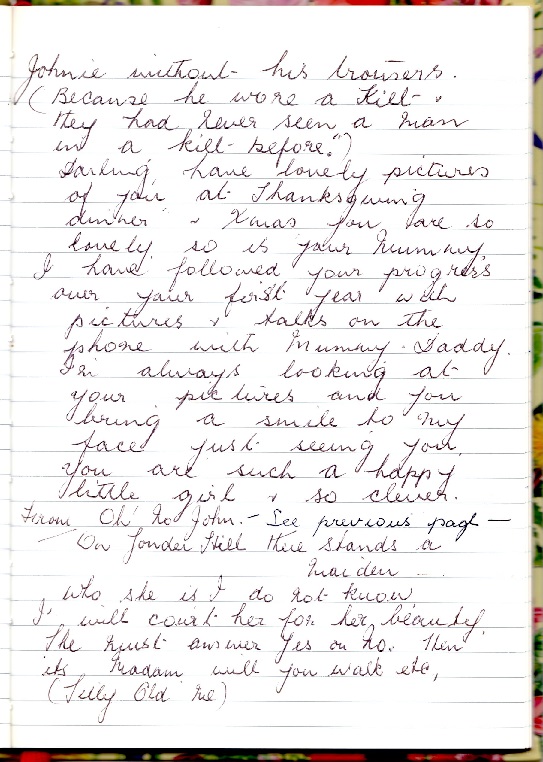 Johnie without his trousers.
(Because he wore a Kilt &
they had never seen a man
in a kilt before.")
Darling, have lovely pictures
of you at Thanksgiving
dinner & Xmas you are so
lovely, so is your Mummy,
I have followed your progress
over your first year with
pictures & talks on the
phone with Mummy. Daddy.
I'm always looking at
your pictures and you
bring a smile to my
face just seeing you,
you are such a happy
little girl & so clever.
From Oh' No John. - See previous page -
On Yonder Hill there stands a
Maiden -
who she is I do not know,
I will court her for her beauty,
She must answer Yes or No. Then
its Madam will you walk etc,
(Silly Old Me)